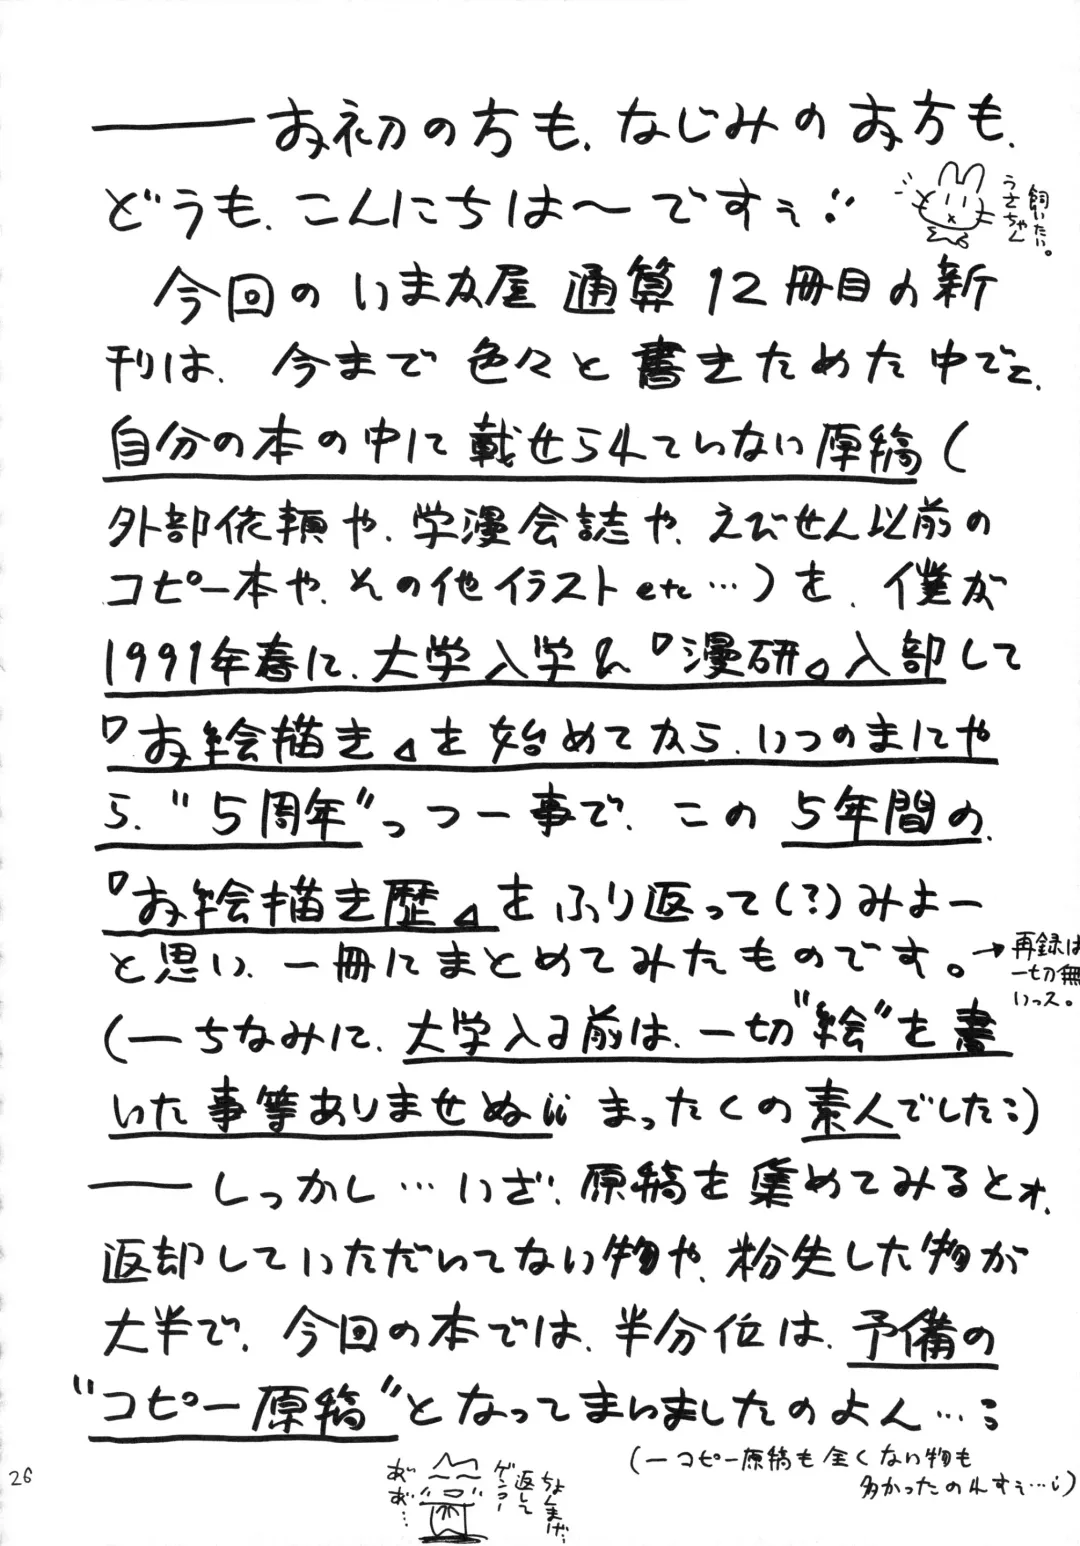 ――お初の方も、なじみのお方も、
どうも、こんにちは〜ですぅ!!
うさちゃん
飼いたい。
今回のいまぁ屋 通算12冊目の新
刊は、今まで色々と書きためた中でェ、
自分の本の中に載せられていない原稿(
外部依頼や、学漫会誌や、えびせん以前の
コピー本や、その他イラストetc…)を、僕が
1991年春に、大学入学&『漫研』入部して
『お絵描き』を始めてから、いつのまにや
ら、"5周年"っつー事で、この5年間の、
『お絵描き歴』をふり返って(?)みよー
と思い、一冊にまとめてみたものです。
→再録は
一切無
いっス。
(―ちなみに、大学入る前は、一切"絵"を書
いた事等ありませぬii まったくの素人でした;)
――しかし…いざ、原稿を集めてみるとォ、
返却していただいてない物や、紛失した物が
大半で、今回の本では、半分位は、予備の
"コピー原稿"となってまいましたのよん…;
(―コピー原稿も全くない物も
多かったのれすぅ…;)
ちょんまげ…
返して
ゲンコー
あぃ
あぉ…
26